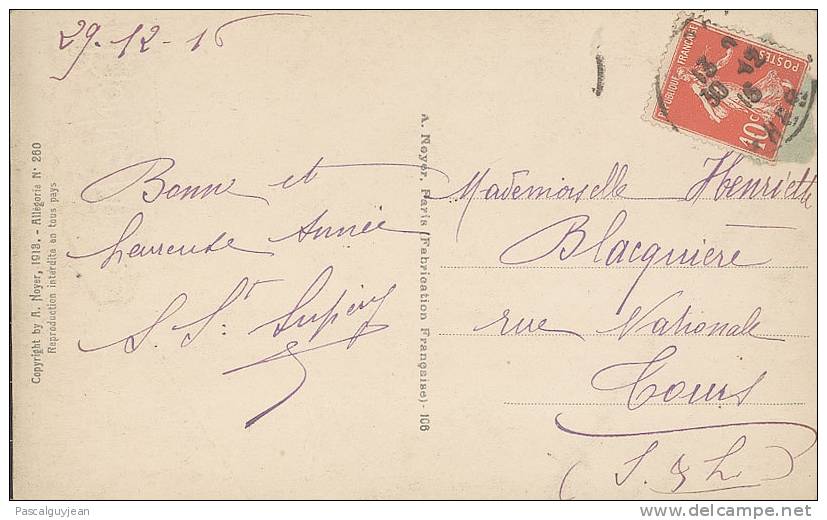 29-12-15
Bonne et
heureuse Année
S. St
Mademoiselle Henriette
Blacquière
rue Nationale
Tours
(I. & L.)
A. Noyer, Paris (Fabrication Française) - 106
Copyright by A. Noyer, 1913. - Allégorie N° 260
Reproduction interdite en tous pays
REPUBLIQUE FRANCAISE
POSTES
10c
Pascalguyjean
© delcampe.net